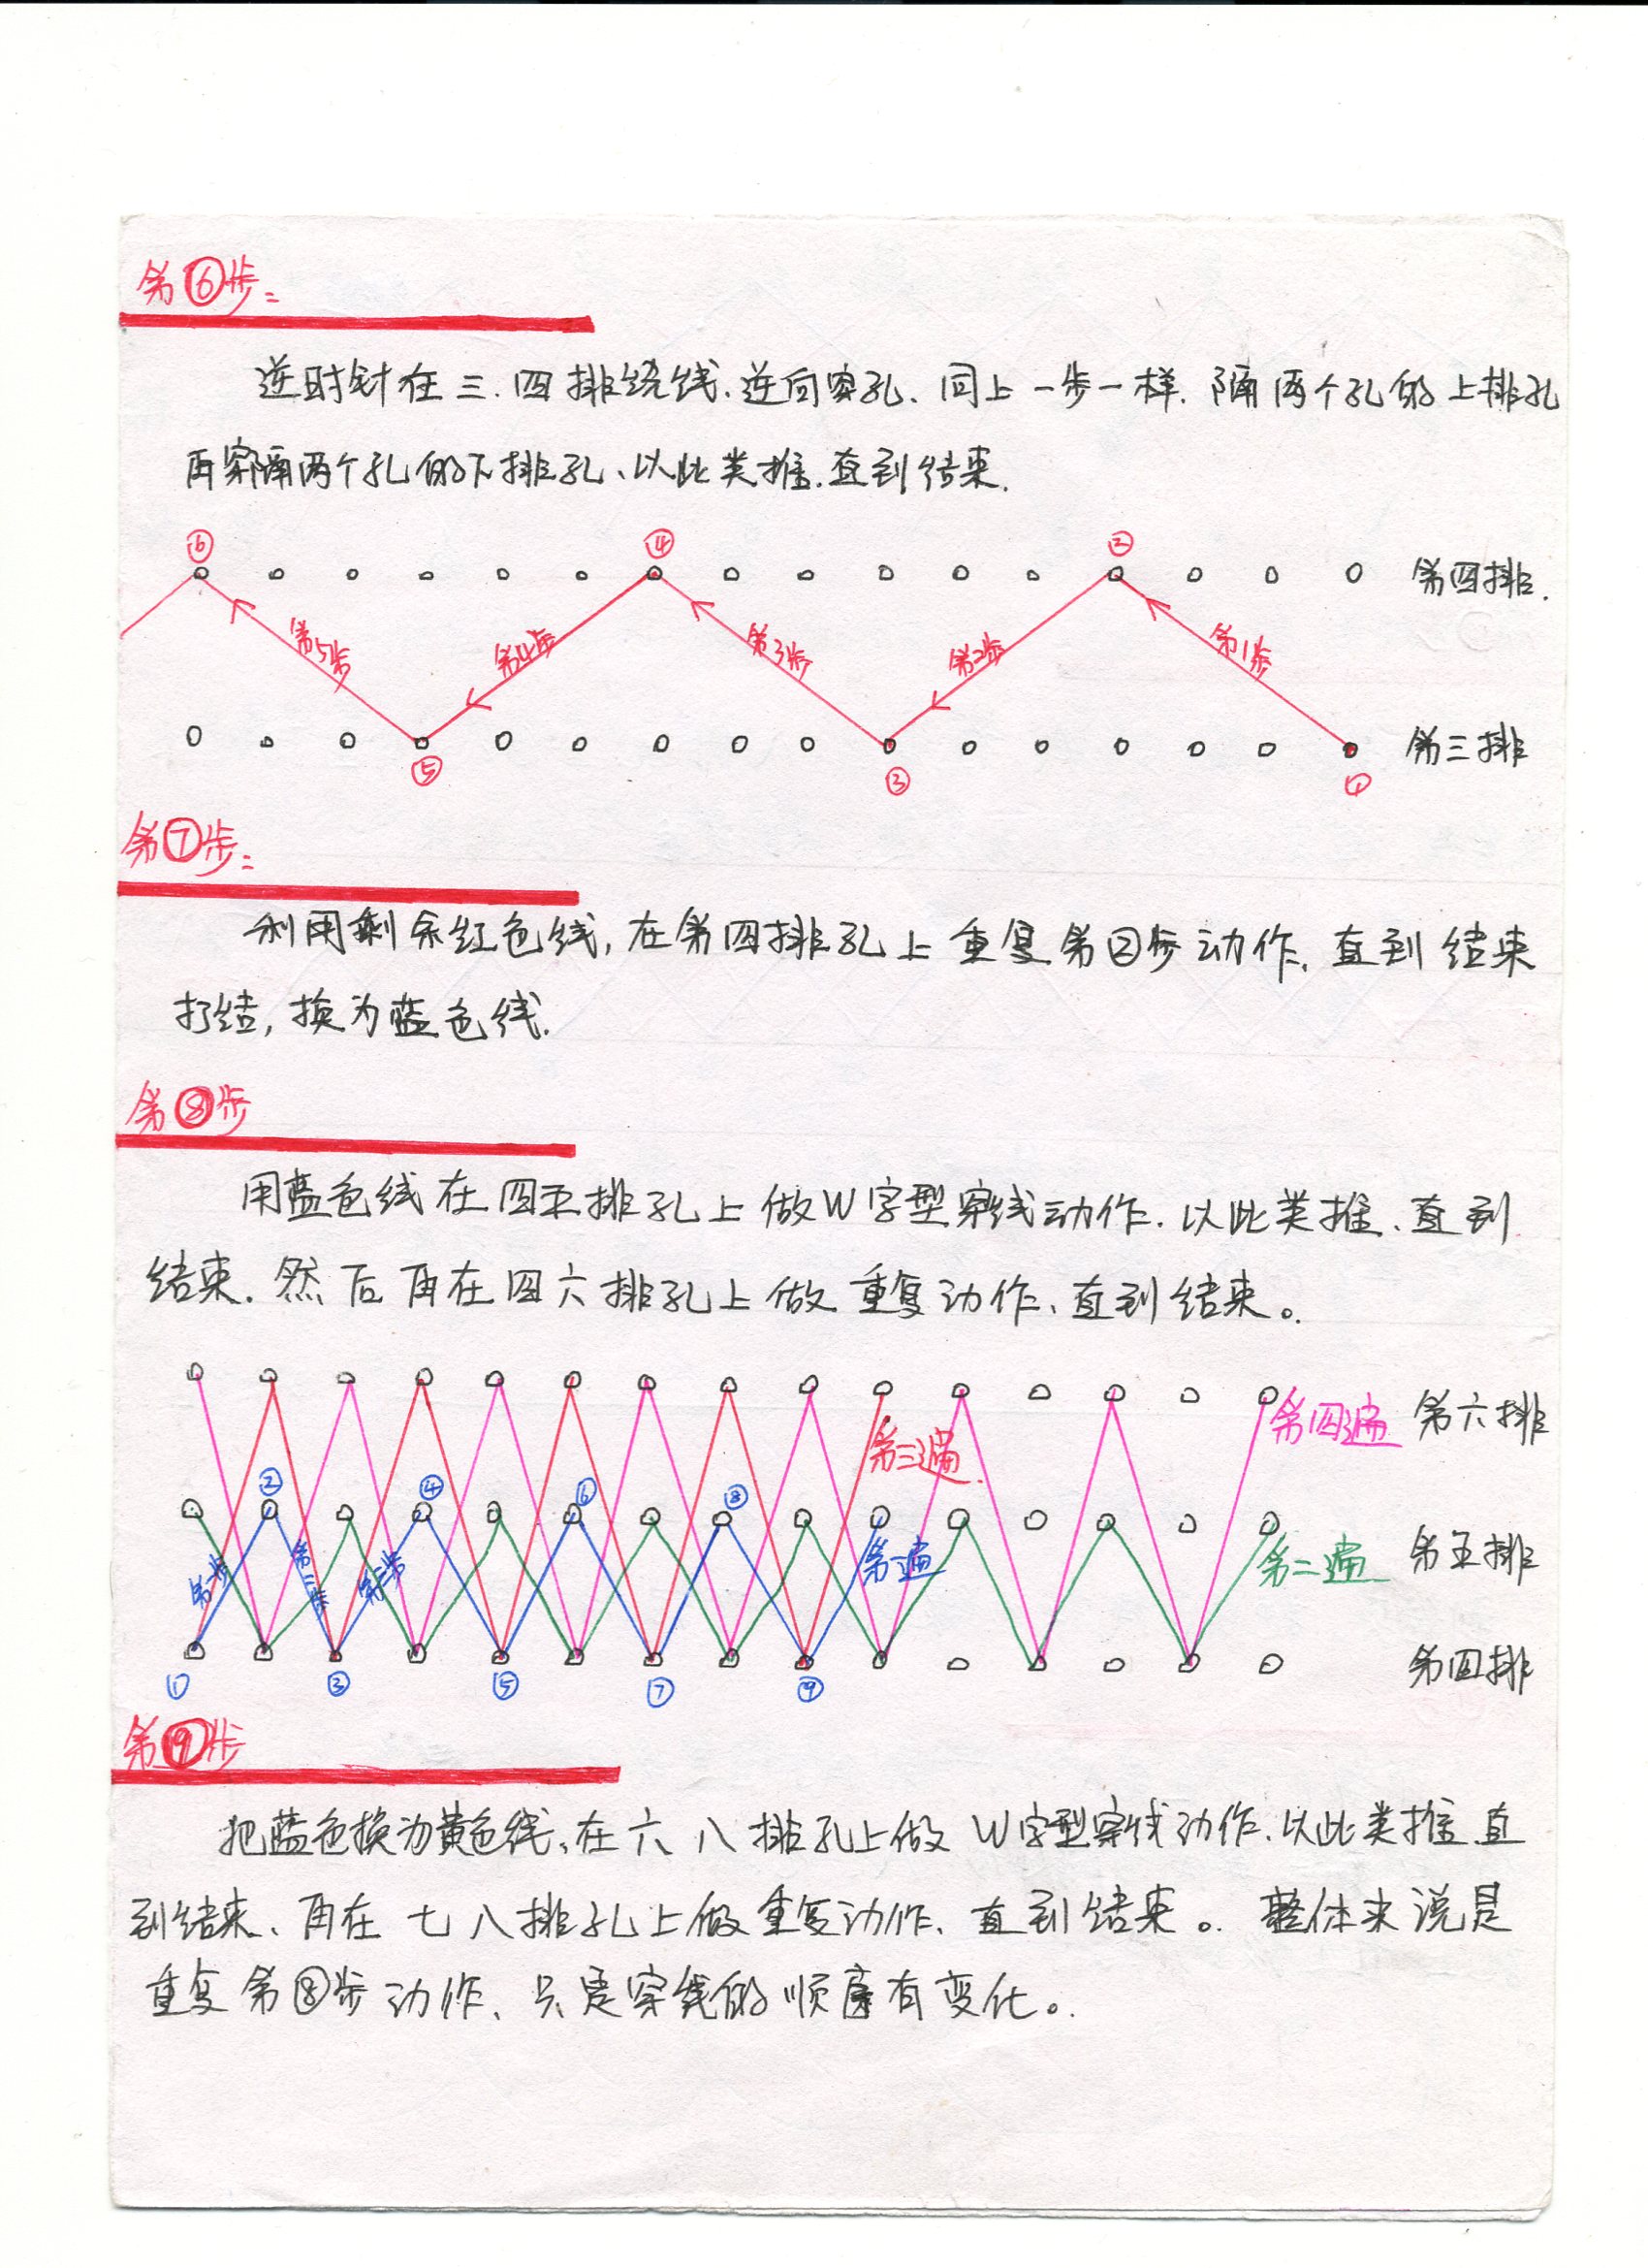 第⑥步:
逆时针在三.四排绕线.逆向穿孔、同上一步一样.隔两个孔的上排孔
再穿隔两个孔的下排孔、以此类推.直到结束.
⑥ ④ ②
第四排.
第5步 第4步 第3步 第2步 第1步
第三排
⑤ ③ ①
第⑦步:
利用剩余红色线,在第四排孔上重复第②步动作.直到结束
打结,换为蓝色线.
第⑧步
用蓝色线在四五排孔上做W字型穿线动作.以此类推、直到
结束.然后再在四六排孔上做重复动作、直到结束。
第四遍 第六排
第三遍.
② ④ ⑥ ⑧
第一步 第二步 第三步 第一遍 第二遍 第五排
第四排
① ③ ⑤ ⑦ ⑨
第⑨步
把蓝色换为黄色线、在六八排孔上做W字型穿线动作.以此类推.直
到结束、再在七八排孔上做重复动作、直到结束。整体来说是
重复第⑧步动作、只是穿线的顺序有变化。